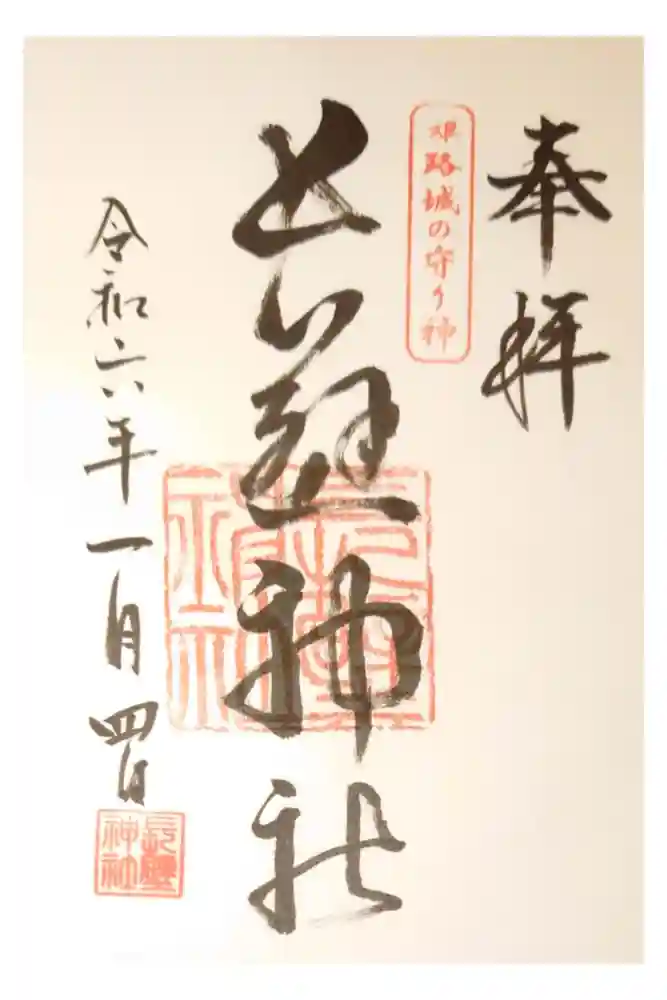 奉拝
姫路城の守り神
長壁神社
令和六年一月四日
長壁神社